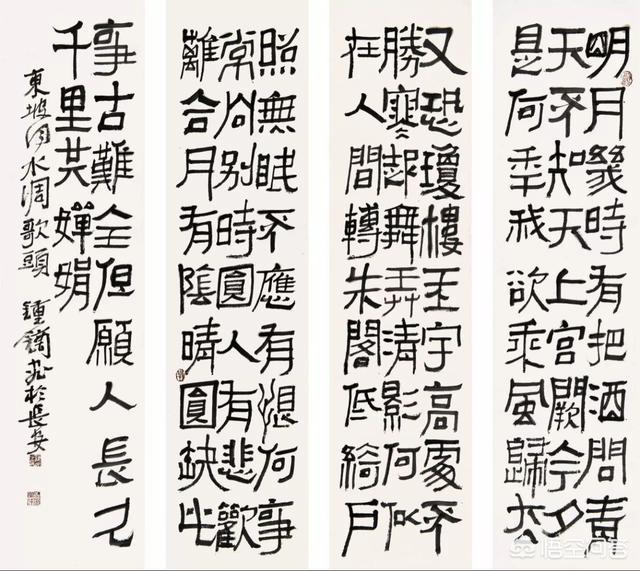 明月幾時有把酒問青
天不知天上宮闕今夕
是何年我欲乘風歸去
又恐瓊樓玉宇高處不
勝寒起舞弄清影何似
在人間轉朱閣低綺户
照無眠不應有恨何事
常向別時圓人有悲歡
離合月有陰晴圓缺此
事古難全但願人長久
千里共嬋娟
東坡詞水調歌頭 鍾鏑書於長安
悟空问答